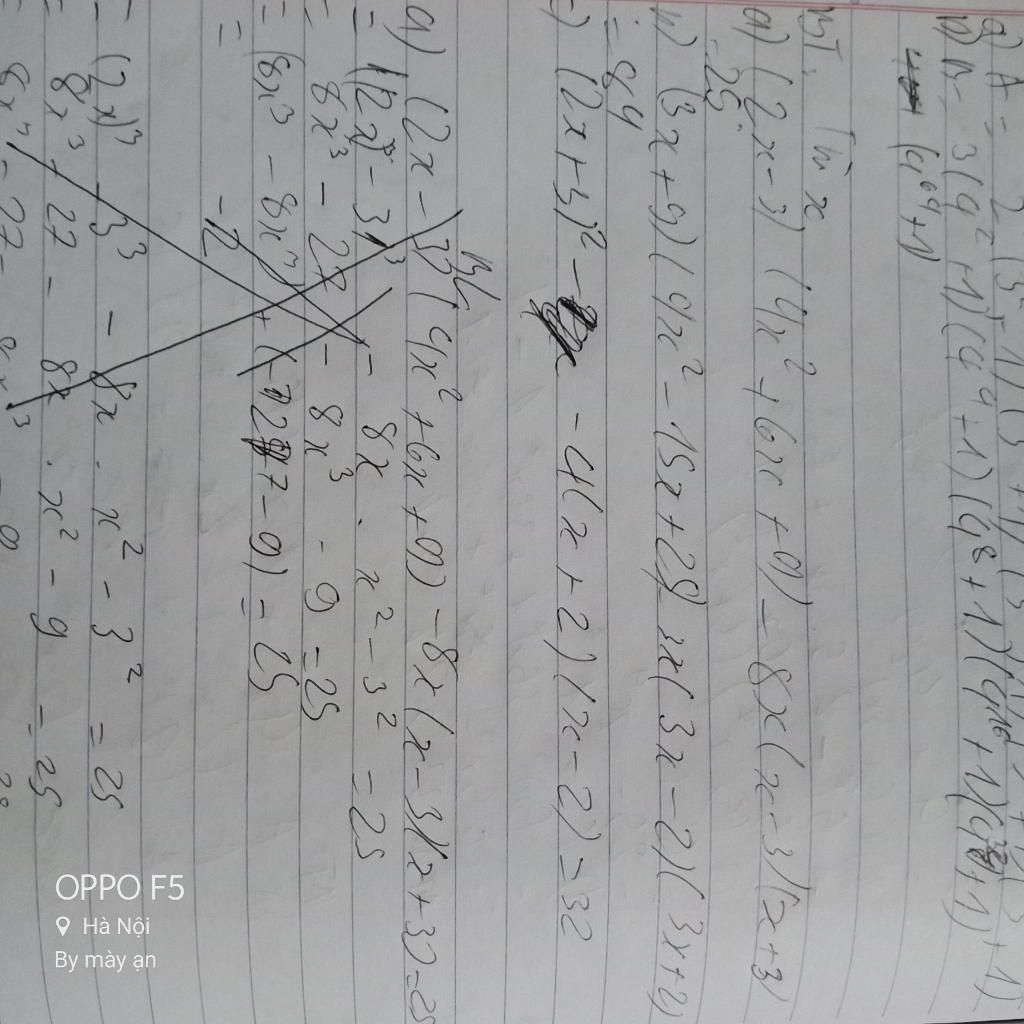 a) A = 2 (3² - 1) (3
b) B = 3(4² + 1)(4⁴ + 1)(4⁸ + 1)(4¹⁶ + 1)(4³² + 1)
- (4⁶⁴ + 1)
BT. Tìm x
a) (2x - 3) (4x² + 6x + 9) - 8x(x - 3)(x + 3)
= 25
b) (3x + 9)(9x² - 15x + 25) 3x(3x - 2)(3x + 2)
= 89
c) (2x + 3)² - 4(x + 2)(x - 2) = 32
BL
a) (2x - 3)(4x² + 6x + 9) - 8x(x - 3)(x + 3) = 25
= (2x)³ - 3³ - 8x . x² - 3² = 25
= 8x³ - 27 - 8x³ - 9 = 25
= (8x³ - 8x³) + (-27 - 9) = 25
= -12
= (2x)³ - 3³ - 8x . x² - 3² = 25
= 8x³ - 27 - 8x . x² - 9 = 25
OPPO F5
Hà Nội
By mày ạn